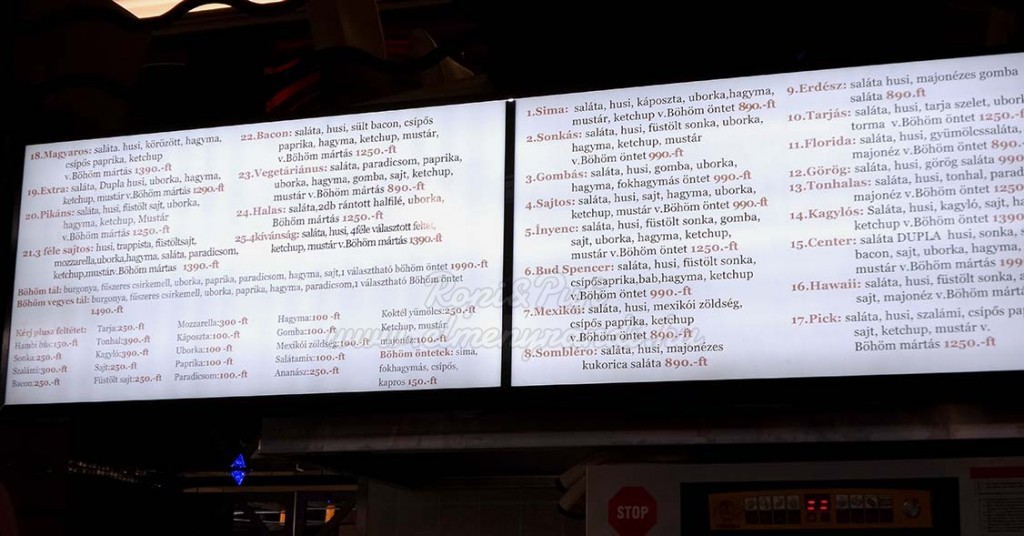 18.Magyaros: saláta. husi, körözött, hagyma,
csípős paprika, ketchup
v.Böhöm mártás 1390.-ft
19.Extra: saláta, Dupla husi, uborka, hagyma,
ketchup, mustár v.Böhöm mártás 1290-ft
20.Pikáns: saláta, husi, füstölt sajt, uborka,
hagyma, ketchup, Mustár
v.Böhöm mártás 1250.-ft
21.3 féle sajtos: husi, trappista, füstöltsajt,
mozzarella,uborka,hagyma, saláta, paradicsom,
ketchup,mustár.Böhöm mártás 1390.-ft
22.Bacon: saláta, husi, sült bacon, csípős
paprika, hagyma, ketchup, mustár,
v.Böhöm mártás 1250.-ft
23.Vegetáriánus: saláta, paradicsom, paprika,
uborka, hagyma, gomba, sajt, ketchup,
mustár v.Böhöm mártás 890.-ft
24.Halas: saláta,2db rántott halfilé, uborka,
Böhöm mártás 1250.-ft
25.4kívánság: saláta, husi, 4féle választott feltét,
ketchup, mustár v.Böhöm mártás 1390.-ft
Böhöm tál: burgonya, fűszeres csirkemell, uborka, paprika, paradicsom, hagyma, sajt,1 választható böhöm öntet 1990.-ft
Böhöm vegyes tál: burgonya, fűszeres csirkemell, uborka, paprika, hagyma, paradicsom,1 választható Böhöm öntet
1490.-ft
Kérj plusz feltétet:
Hambi hús:150.-ft
Sonka:250.-ft
Szalámi:300.-ft
Bacon:250.-ft
Tarja:250.-ft
Tonhal:390.-ft
Kagyló:390.-ft
Sajt:250.-ft
Füstölt sajt:250.-ft
Mozzarella:300 -ft
Káposzta:100.-ft
Uborka:100 -ft
Paprika:100 -ft
Paradicsom:100.-ft
Hagyma:100 -ft
Gomba:100.-ft
Mexikói zöldség:100.-ft
Salátamix:100.-ft
Ananász:250.-ft
Koktél gyümölcs:250.-ft
Ketchup, mustár,
majonéz:100.-ft
Böhöm öntetek: sima,
fokhagymás, csípős,
kapros 150.-ft
1.Sima: saláta, husi, káposzta, uborka,hagyma,
mustár, ketchup v.Böhöm öntet 890.-ft
2.Sonkás: saláta, husi, füstölt sonka, uborka,
hagyma, ketchup, mustár
v.Böhöm öntet 990.-ft
3.Gombás: saláta, husi, gomba, uborka,
hagyma, fokhagymás öntet 990.-ft
4.Sajtos: saláta, husi, sajt, hagyma, uborka,
ketchup, mustár, v.Böhöm öntet 990.-ft
5.Ínyenc: saláta, husi, füstölt sonka, gomba,
sajt, uborka, hagyma, ketchup,
mustár v.Böhöm öntet 1250.-ft
6.Bud Spencer: saláta, husi, füstölt sonka,
csípősaprika,bab,hagyma, ketchup
v.Böhöm öntet 990.-ft
7.Mexikói: saláta, husi, mexikói zöldség,
csípős paprika, ketchup
v.Böhöm öntet 890.-ft
8.Sombléro: saláta, husi, majonézes
kukorica saláta 890.-ft
9.Erdész: saláta husi, majonézes gomba
saláta 890.ft
10.Tarjás: saláta, husi, tarja szelet, ubork
torma v.Böhöm öntet 1250.-
11.Florida: saláta, husi, gyümölcssaláta,
majonéz v.Böhöm öntet 890.-
12.Görög: saláta, husi, görög saláta 990
13.Tonhalas: saláta, husi, tonhal, parad
majonéz v.Böhöm öntet 1250
14.Kagylós: Saláta, husi, kagyló, sajt, ha
ketchup v.Böhöm öntet 1390
15.Center: saláta DUPLA husi, sonka, s
bacon, sajt, uborka, hagyma,
mustár v.Böhöm mártás 199
16.Hawaii: saláta, husi, füstölt sonka, a
sajt, majonéz v.Böhöm mártá
17.Pick: saláta, husi, szalámi, csípős pa
sajt, ketchup, mustár v.
Böhöm mártás 1250.-ft
STOP